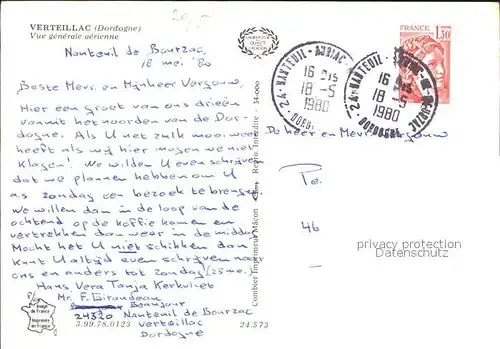 VERTEILLAC (Dordogne)
Vue générale aérienne
Nanteuil de Bourzac,
18 mei '80
Beste Mevr. en Mijnheer Vergouw,
Hier een groet van ons drieën
vanuit het noorden van de Dor-
dogne. Als U net zulk mooi weer
heeft als wij hier mogen we niet
klagen! We wilden U even schrijven
dat we plannen hebben om U
a.s. zondag een bezoek te brengen.
We willen dan in de loop van de
ochtend op de koffie komen en
vertrekken dan weer in de middag
Mocht het U niet schikken dan
kunt U altijd even schrijven naar
ons en anders tot zondag (25 mei)
Hans Vera Tanja Kerkvliet
P/a Mr. F. Girandeau
Bonjour
24320 Nanteuil de Bourzac
Verteillac
Dordogne
Image de France
Imprimée en France
3.99.78.0123
24.573
Combier Imprimeur Mâcon
Repro. Interdite - 34-000
FRANCE
1,30
24 - NANTEUIL - AURIAC
16 H 15
18 - 5
1980
DORDOGNE
16 H 15
18 - 5
1980
DORDOGNE
De heer en Mevr. Vergouw
46
privacy protection
Datenschutz